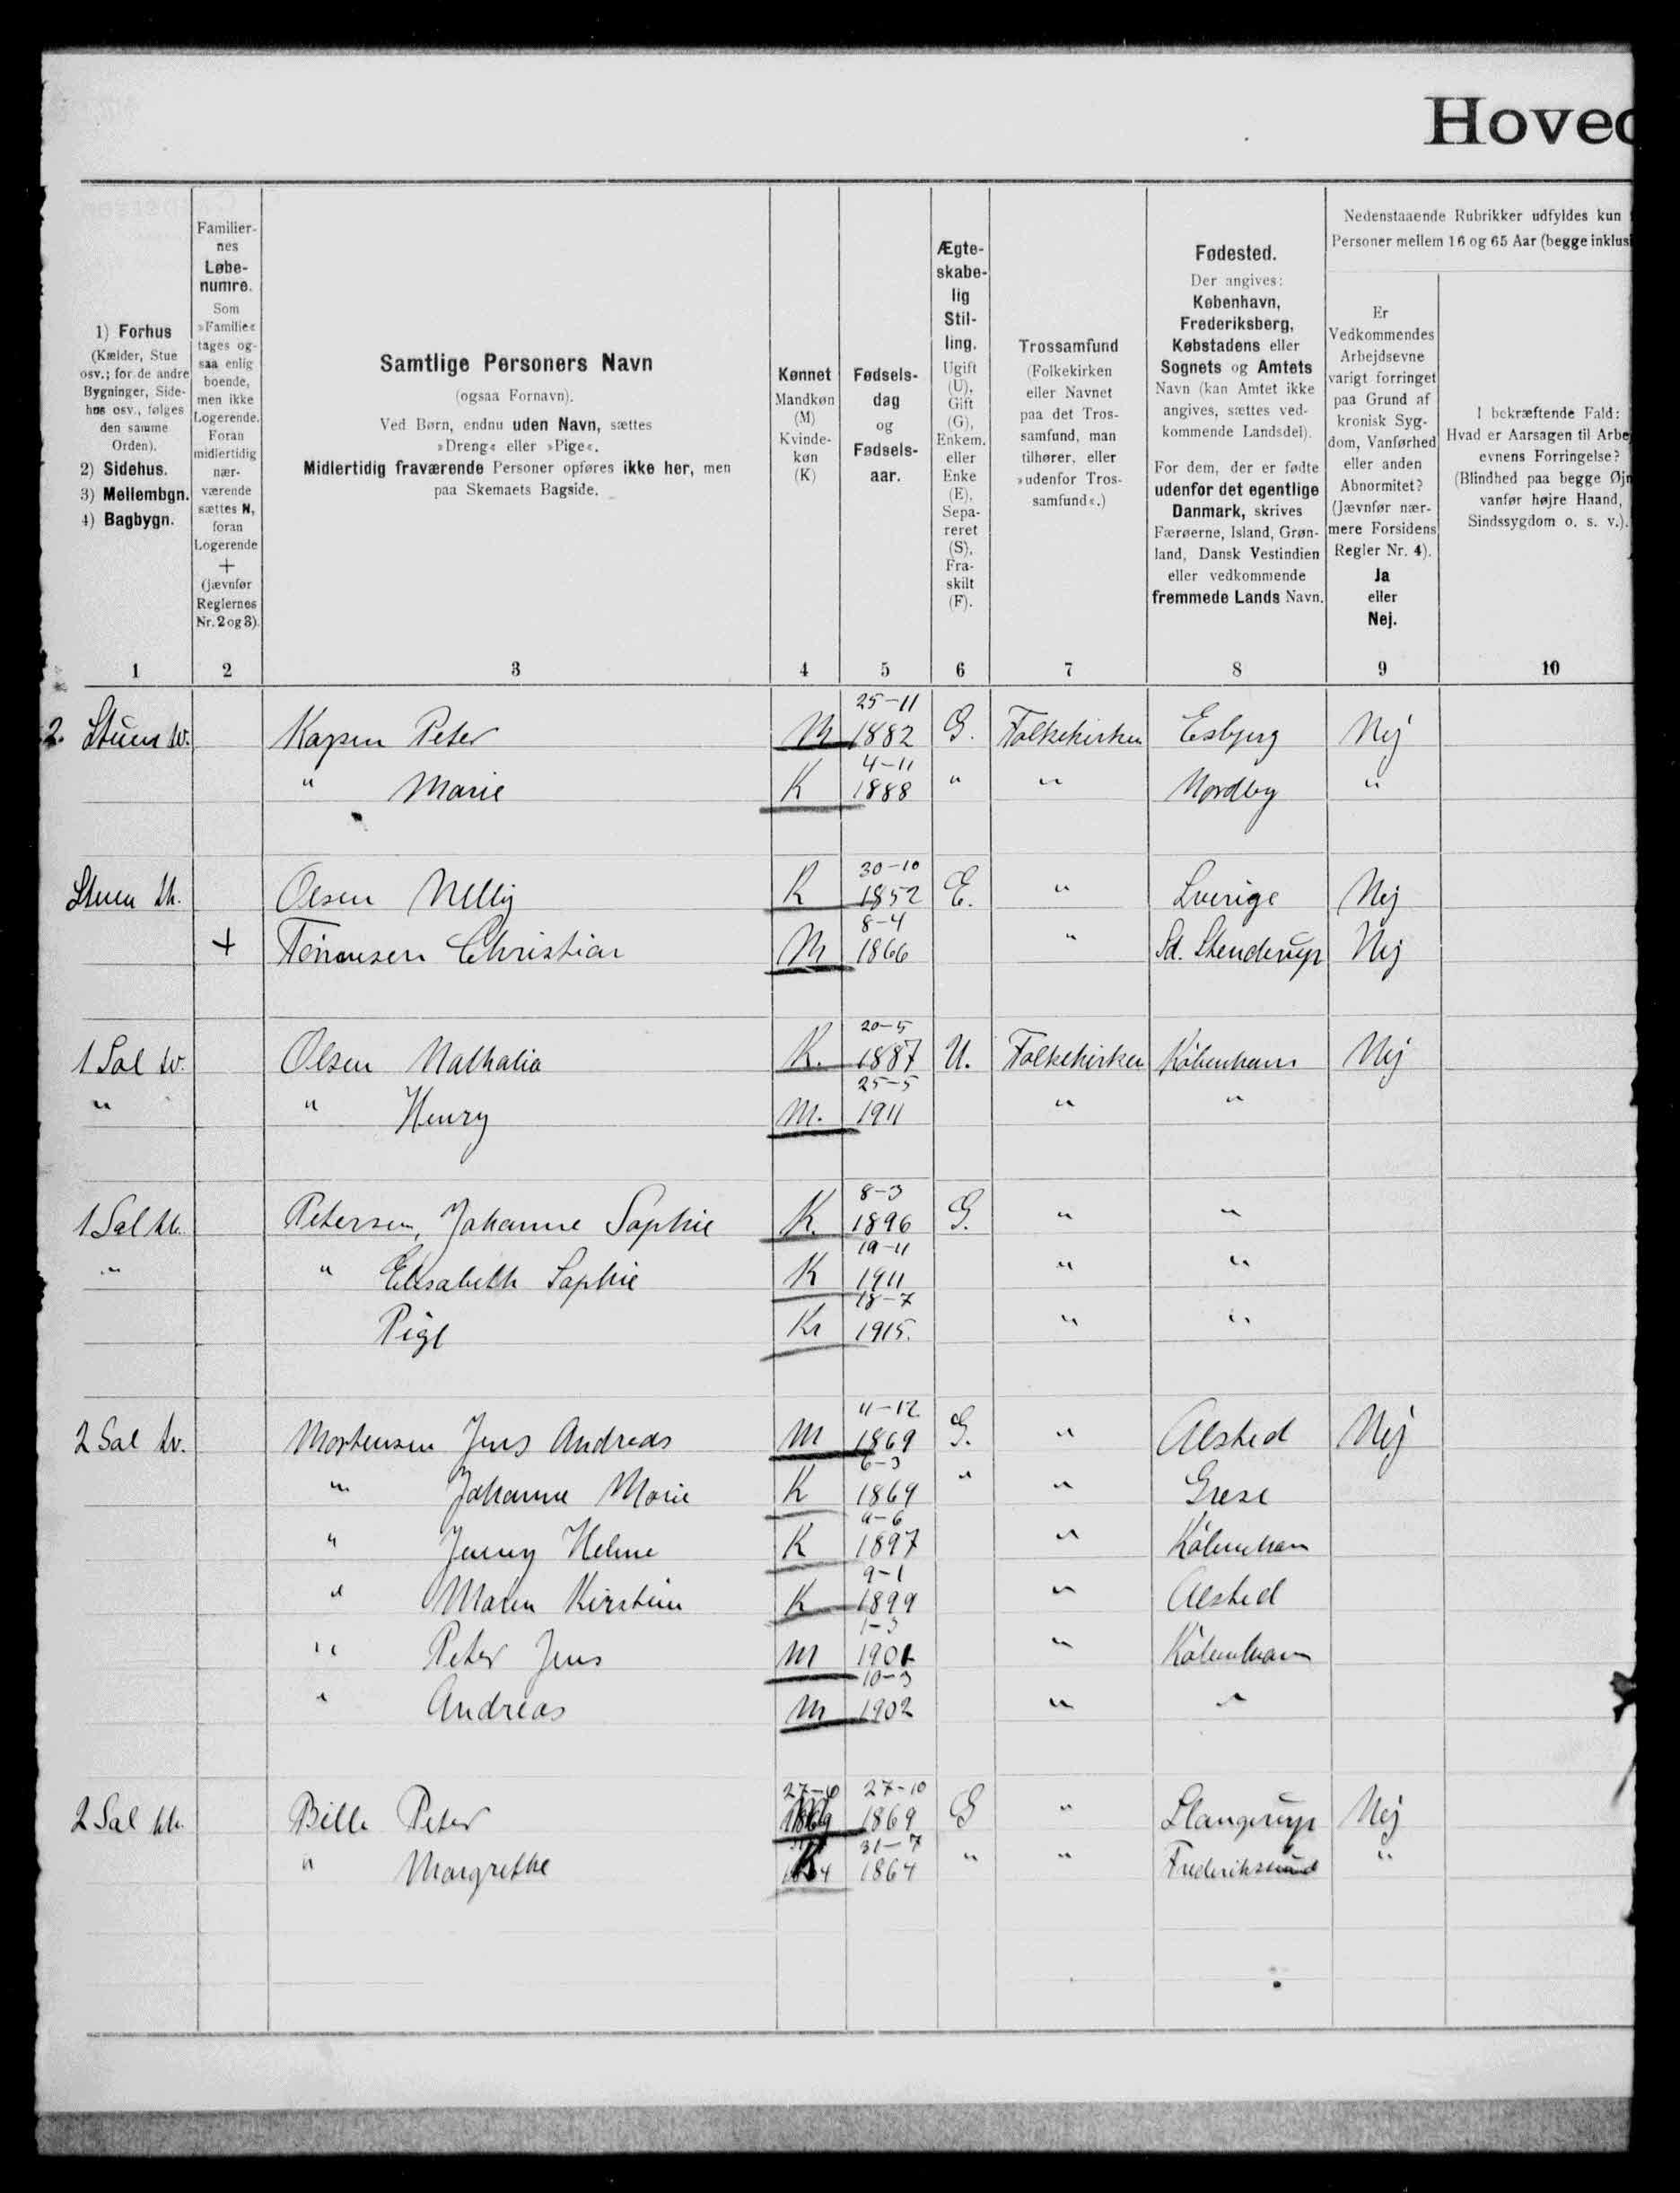 Hoved
1) Forhus
(Kælder, Stue
osv.; for de andre
Bygninger, Side-
hus osv., følges
den samme
Orden).
2) Sidehus.
3) Mellembgn.
4) Bagbygn.
Familier-
nes
Løbe-
numre.
Som
»Familie«
tages og-
saa enlig
boende,
men ikke
Logerende.
Foran
midlertidig
nær-
værende
sættes N,
foran
Logerende
+
(jævnfør
Reglernes
Nr. 2 og 3).
Samtlige Personers Navn
(ogsaa Fornavn).
Ved Børn, endnu uden Navn, sættes
»Dreng« eller »Pige«.
Midlertidig fraværende Personer opføres ikke her, men
paa Skemaets Bagside.
Kønnet
Mandkøn
(M)
Kvinde-
køn
(K)
Fødsels-
dag
og
Fødsels-
aar.
Ægte-
skabe-
lig
Stil-
ling.
Ugift
(U),
Gift
(G),
Enkem.
eller
Enke
(E),
Sepa-
reret
(S),
Fra-
skilt
(F).
Trossamfund
(Folkekirken
eller Navnet
paa det Tros-
samfund, man
tilhører, eller
»udenfor Tros-
samfund«.)
Fødested.
Der angives:
København,
Frederiksberg,
Købstadens eller
Sognets og Amtets
Navn (kan Amtet ikke
angives, sættes ved-
kommende Landsdel).
For dem, der er fødte
udenfor det egentlige
Danmark, skrives
Færøerne, Island, Grøn-
land, Dansk Vestindien
eller vedkommende
fremmede Lands Navn.
Nedenstaaende Rubrikker udfyldes kun
Personer mellem 16 og 65 Aar (begge inklusi
Er
Vedkommendes
Arbejdsevne
varigt forringet
paa Grund af
kronisk Syg-
dom, Vanførhed
eller anden
Abnormitet?
(Jævnfør nær-
mere Forsidens
Regler Nr. 4).
Ja
eller
Nej.
I bekræftende Fald:
Hvad er Aarsagen til Arbe
evnens Forringelse?
(Blindhed paa begge Øjn
vanfør højre Haand,
Sindssygdom o. s. v.).
1 2 3 4 5 6 7 8 9 10
2. Stuen tv. Kapen Peter M 25-11 1882 G. Folkekirken Esbjerg Nej
" Marie K 4-11 1888 " " Nordby "
Stuen th. Olsen Nelly K 30-10 1852 E. " Sverige Nej
+ Christian M 8-4 1866 " Sd. Stenderup Nej
1 Sal tv. Olsen Nathalia K. 20-5 1887 U. Folkekirken København Nej
" " Henry M. 25-5 1911 " "
1 Sal th. Petersen, Johanne Sophie K. 8-3 1896 G. " "
" " Elisabeth Sophie K 19-11 1911 " "
Pige K 18-7 1915. " "
2 Sal tv. Mortensen Jens Andreas M 4-12 1869 G. " Alsted Nej
" Johanne Marie K 6-3 1869 " " Grese
" Jenny Helene K 1897 " København
" Maren Kirstine K 9-1 1899 " Alsted
" Peter Jens M 1-3 1901 " København
" Andreas M 10-3 1902 " "
2 Sal th. Bille Peter M 27-10 1869 G " Slangerup Nej
" Margrethe K 31-7 1864 " " Frederikssund "